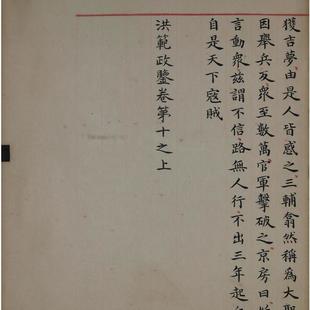 獲吉夢由是人皆惑之三輔翕然稱為大聖
因舉兵反衆至數萬官軍擊破之京房曰
言動衆兹謂不信路無人行不出三年起
自是天下寇賊
洪範政鑒卷第十之上